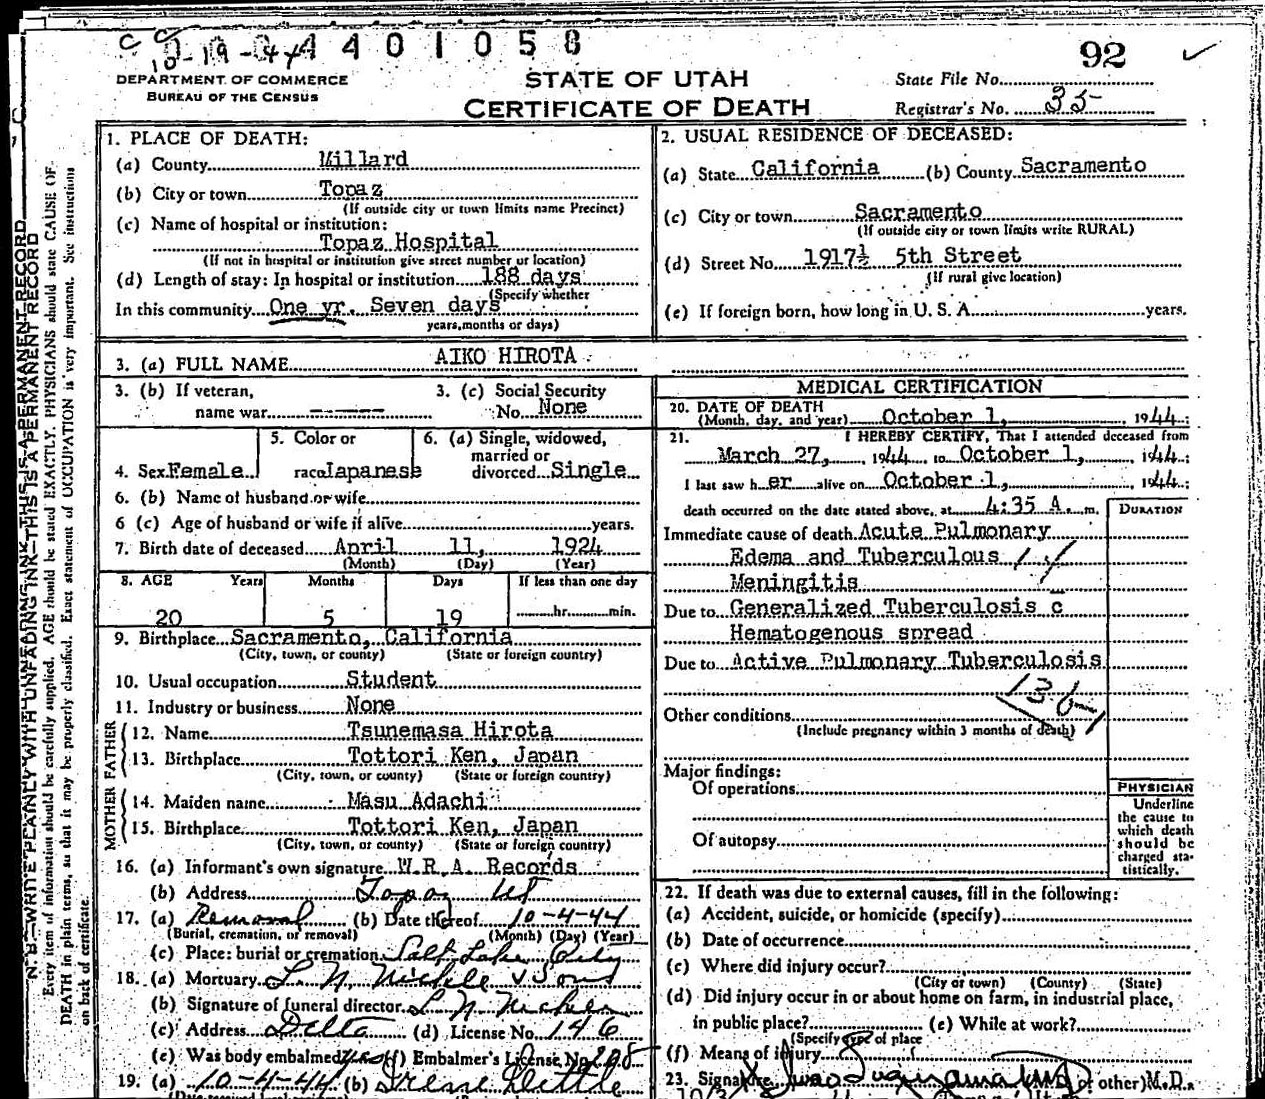 4401058
10-19-44
92
DEPARTMENT OF COMMERCE
BUREAU OF THE CENSUS
STATE OF UTAH
CERTIFICATE OF DEATH
State File No.
Registrar's No. 35
N. B.—WRITE PLAINLY WITH UNFADING INK—THIS IS A PERMANENT RECORD
Every item of information should be carefully supplied. AGE should be stated EXACTLY. PHYSICIANS should state CAUSE OF
DEATH in plain terms, so that it may be properly classified. Exact statement of OCCUPATION is very important. See instructions
on back of certificate.
1. PLACE OF DEATH:
(a) County Millard
(b) City or town Topaz
(If outside city or town limits name Precinct)
(c) Name of hospital or institution:
Topaz Hospital
(If not in hospital or institution give street number or location)
(d) Length of stay: In hospital or institution 188 days
(Specify whether
In this community One yr. Seven days
years, months or days)
2. USUAL RESIDENCE OF DECEASED:
(a) State California (b) County Sacramento
(c) City or town Sacramento
(If outside city or town limits write RURAL)
(d) Street No. 1917½ 5th Street
(If rural give location)
(e) If foreign born, how long in U. S. A. years.
3. (a) FULL NAME AIKO HIROTA
3. (b) If veteran,
name war -----
3. (c) Social Security
No. None
4. Sex Female
5. Color or
race Japanese
6. (a) Single, widowed,
married or
divorced Single
6. (b) Name of husband or wife
6 (c) Age of husband or wife if alive years.
7. Birth date of deceased April 11, 1924
(Month) (Day) (Year)
8. AGE Years Months Days If less than one day
20 5 19 hr. min.
9. Birthplace Sacramento, California
(City, town, or county) (State or foreign country)
10. Usual occupation Student
11. Industry or business None
FATHER
12. Name Tsunemasa Hirota
13. Birthplace Tottori Ken, Japan
(City, town, or county) (State or foreign country)
MOTHER
14. Maiden name Masu Adachi
15. Birthplace Tottori Ken, Japan
(City, town, or county) (State or foreign country)
16. (a) Informant's own signature W.R.A. Records
(b) Address Topaz Ut
17. (a) Removal (b) Date thereof 10-4-44
(Burial, cremation, or removal) (Month) (Day) (Year)
(c) Place: burial or cremation Salt Lake City
18. (a) Mortuary L. N. Nickle & Sons
(b) Signature of funeral director L N Nickle
(c) Address Delta (d) License No. 146
(e) Was body embalmed yes (f) Embalmer's License No. 205
19. (a) 10-4-44 (b)
MEDICAL CERTIFICATION
20. DATE OF DEATH
(Month, day, and year) October 1, 1944:
21. I HEREBY CERTIFY, That I attended deceased from
March 27, 1944 to October 1, 1944:
I last saw her alive on October 1, 1944:
death occurred on the date stated above, at 4:35 A. m.
DURATION
Immediate cause of death Acute Pulmonary
Edema and Tuberculous
Meningitis
Due to Generalized Tuberculosis c̄
Hematogenous spread
Due to Active Pulmonary Tuberculosis
13-6-1
Other conditions
(Include pregnancy within 3 months of death)
Major findings:
Of operations
Of autopsy
PHYSICIAN
Underline
the cause to
which death
should be
charged sta-
tistically.
22. If death was due to external causes, fill in the following:
(a) Accident, suicide, or homicide (specify)
(b) Date of occurrence
(c) Where did injury occur?
(City or town) (County) (State)
(d) Did injury occur in or about home on farm, in industrial place,
in public place? (e) While at work?
(Specify type of place
(f) Means of injury
23. Signature Sugiyama MD (or other) M.D.
10/3/